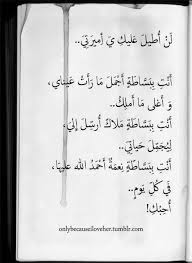 لَنْ أُطِيلَ عَلَيكِ يَ أَمِيرَتِي..
أَنْتِ بِبَسَاطَةٍ أَجْمَلُ مَا رَأَتْ عَيْنَاي،
وَ أَغْلَى مَا أَمْلِكُ..
أَنْتِ بِبَسَاطَةٍ مَلَاكٌ أُرْسِلَ إِلَيَّ،
لِيُجَمِّلَ حَيَاتِي..
أَنْتِ بِبَسَاطَةٍ نِعْمَةٌ أَحْمَدُ اللهَ عَلَيْهَا،
فِي كُلِّ يَوْمٍ..
أُحِبُّكِ!
onlybecauseiloveher.tumblr.com